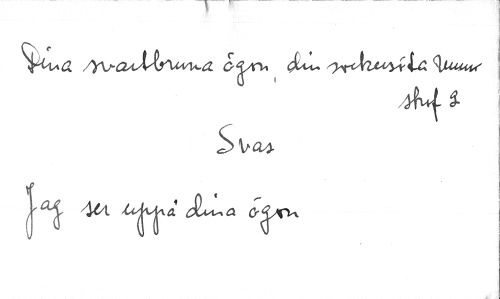 Dina svartbruna ögon, din sockersöta
shuf 9
Svar
Jag ser uppå dina ögon